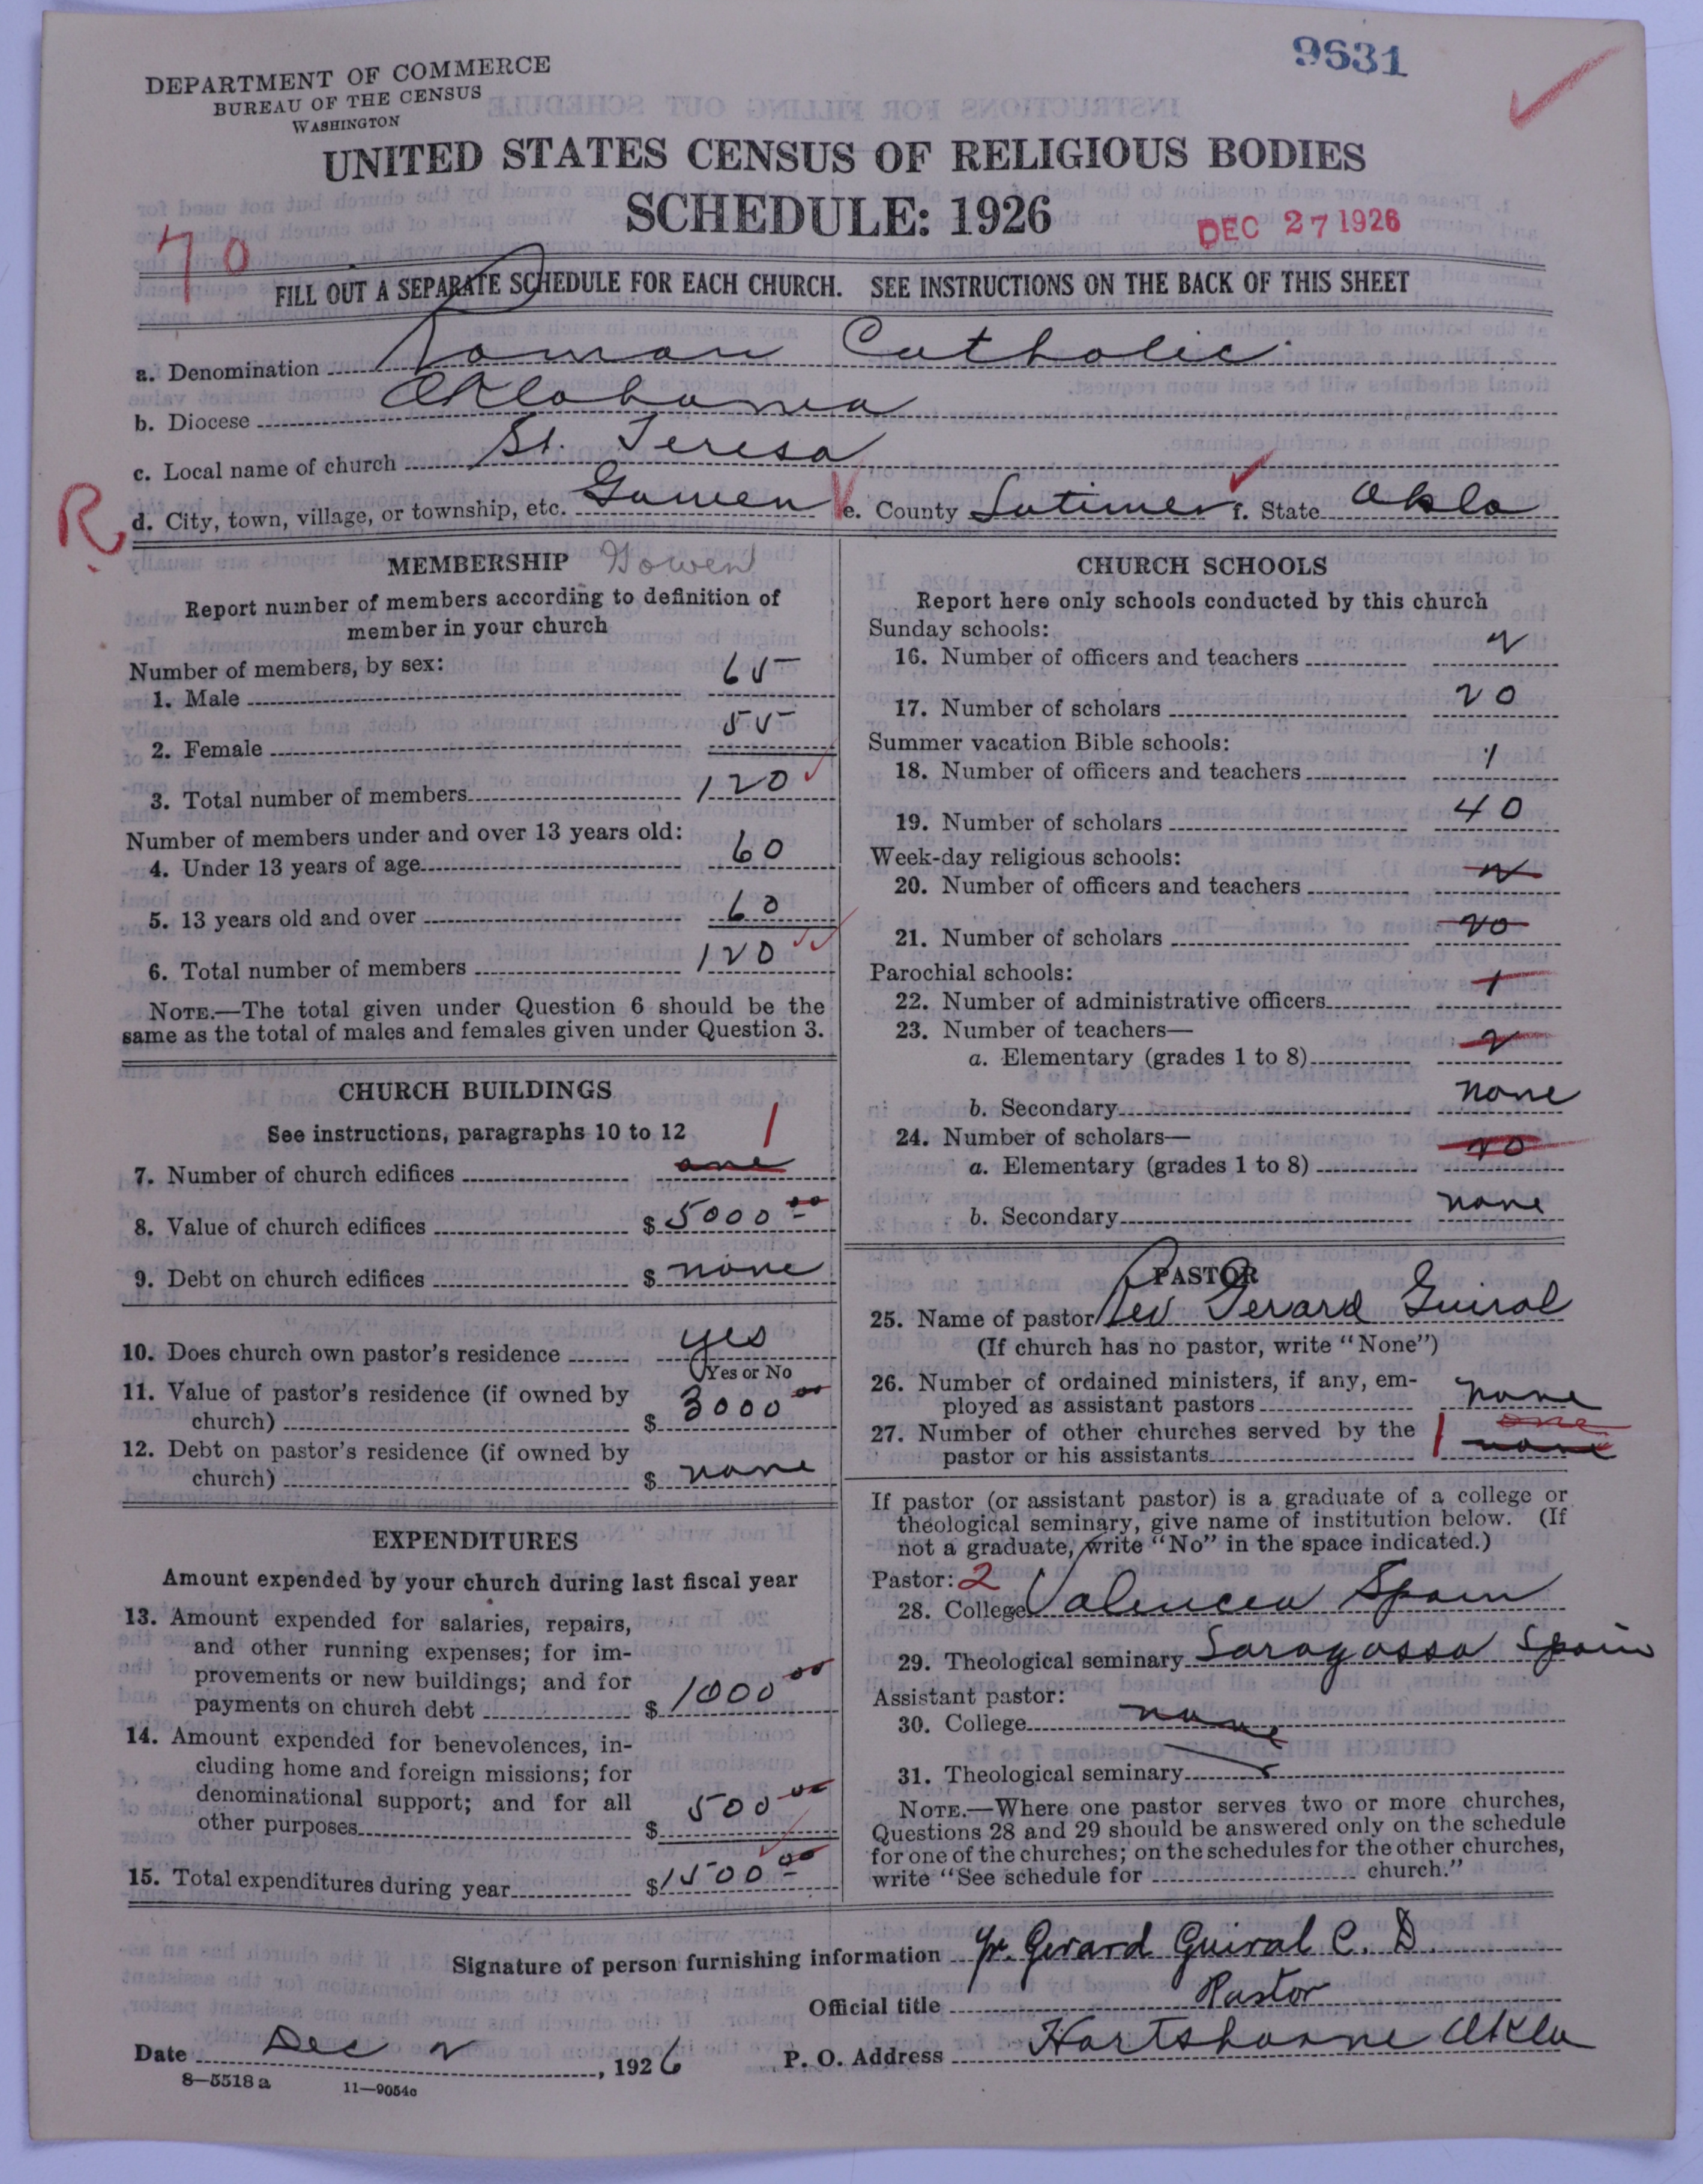 9631
DEPARTMENT OF COMMERCE
BUREAU OF THE CENSUS
WASHINGTON
UNITED STATES CENSUS OF RELIGIOUS BODIES
SCHEDULE: 1926
DEC 27 1926
70
FILL OUT A SEPARATE SCHEDULE FOR EACH CHURCH. SEE INSTRUCTIONS ON THE BACK OF THIS SHEET
a. Denomination Roman Catholic
b. Diocese Oklahoma
c. Local name of church St. Teresa
R d. City, town, village, or township, etc. Gowen e. County Latimer f. State Okla
MEMBERSHIP Gowen
Report number of members according to definition of
member in your church
Number of members, by sex:
1. Male 65
2. Female 55
3. Total number of members 120
Number of members under and over 13 years old:
4. Under 13 years of age 60
5. 13 years old and over 60
6. Total number of members 120
NOTE.—The total given under Question 6 should be the
same as the total of males and females given under Question 3.
CHURCH BUILDINGS
See instructions, paragraphs 10 to 12 1
7. Number of church edifices one
8. Value of church edifices $ 5000 00
9. Debt on church edifices $ none
10. Does church own pastor's residence yes
Yes or No
11. Value of pastor's residence (if owned by
church) $ 3000 00
12. Debt on pastor's residence (if owned by
church) $ none
EXPENDITURES
Amount expended by your church during last fiscal year
13. Amount expended for salaries, repairs,
and other running expenses; for im-
provements or new buildings; and for
payments on church debt $ 1000 00
14. Amount expended for benevolences, in-
cluding home and foreign missions; for
denominational support; and for all
other purposes $ 500 00
15. Total expenditures during year $ 1500 00
CHURCH SCHOOLS
Report here only schools conducted by this church
Sunday schools:
16. Number of officers and teachers 2
17. Number of scholars 20
Summer vacation Bible schools:
18. Number of officers and teachers 1
19. Number of scholars 40
Week-day religious schools:
20. Number of officers and teachers 2
21. Number of scholars 20
Parochial schools:
22. Number of administrative officers 1
23. Number of teachers—
a. Elementary (grades 1 to 8) 2
b. Secondary none
24. Number of scholars—
a. Elementary (grades 1 to 8) 20
b. Secondary none
PASTOR
25. Name of pastor Rev Gerard Guiral
(If church has no pastor, write "None")
26. Number of ordained ministers, if any, em-
ployed as assistant pastors none
27. Number of other churches served by the 1 one
pastor or his assistants none
If pastor (or assistant pastor) is a graduate of a college or
theological seminary, give name of institution below. (If
not a graduate, write "No" in the space indicated.)
Pastor: 2
28. College Valencea Spain
29. Theological seminary Saragossa Spain
Assistant pastor:
30. College none
31. Theological seminary
NOTE.—Where one pastor serves two or more churches,
Questions 28 and 29 should be answered only on the schedule
for one of the churches; on the schedules for the other churches,
write "See schedule for church."
Signature of person furnishing information Fr. Gerard Guiral C. D.
Official title Pastor
Date Dec 2, 1926 P. O. Address Hartshorne Okla
8—5518 a 11—9054c